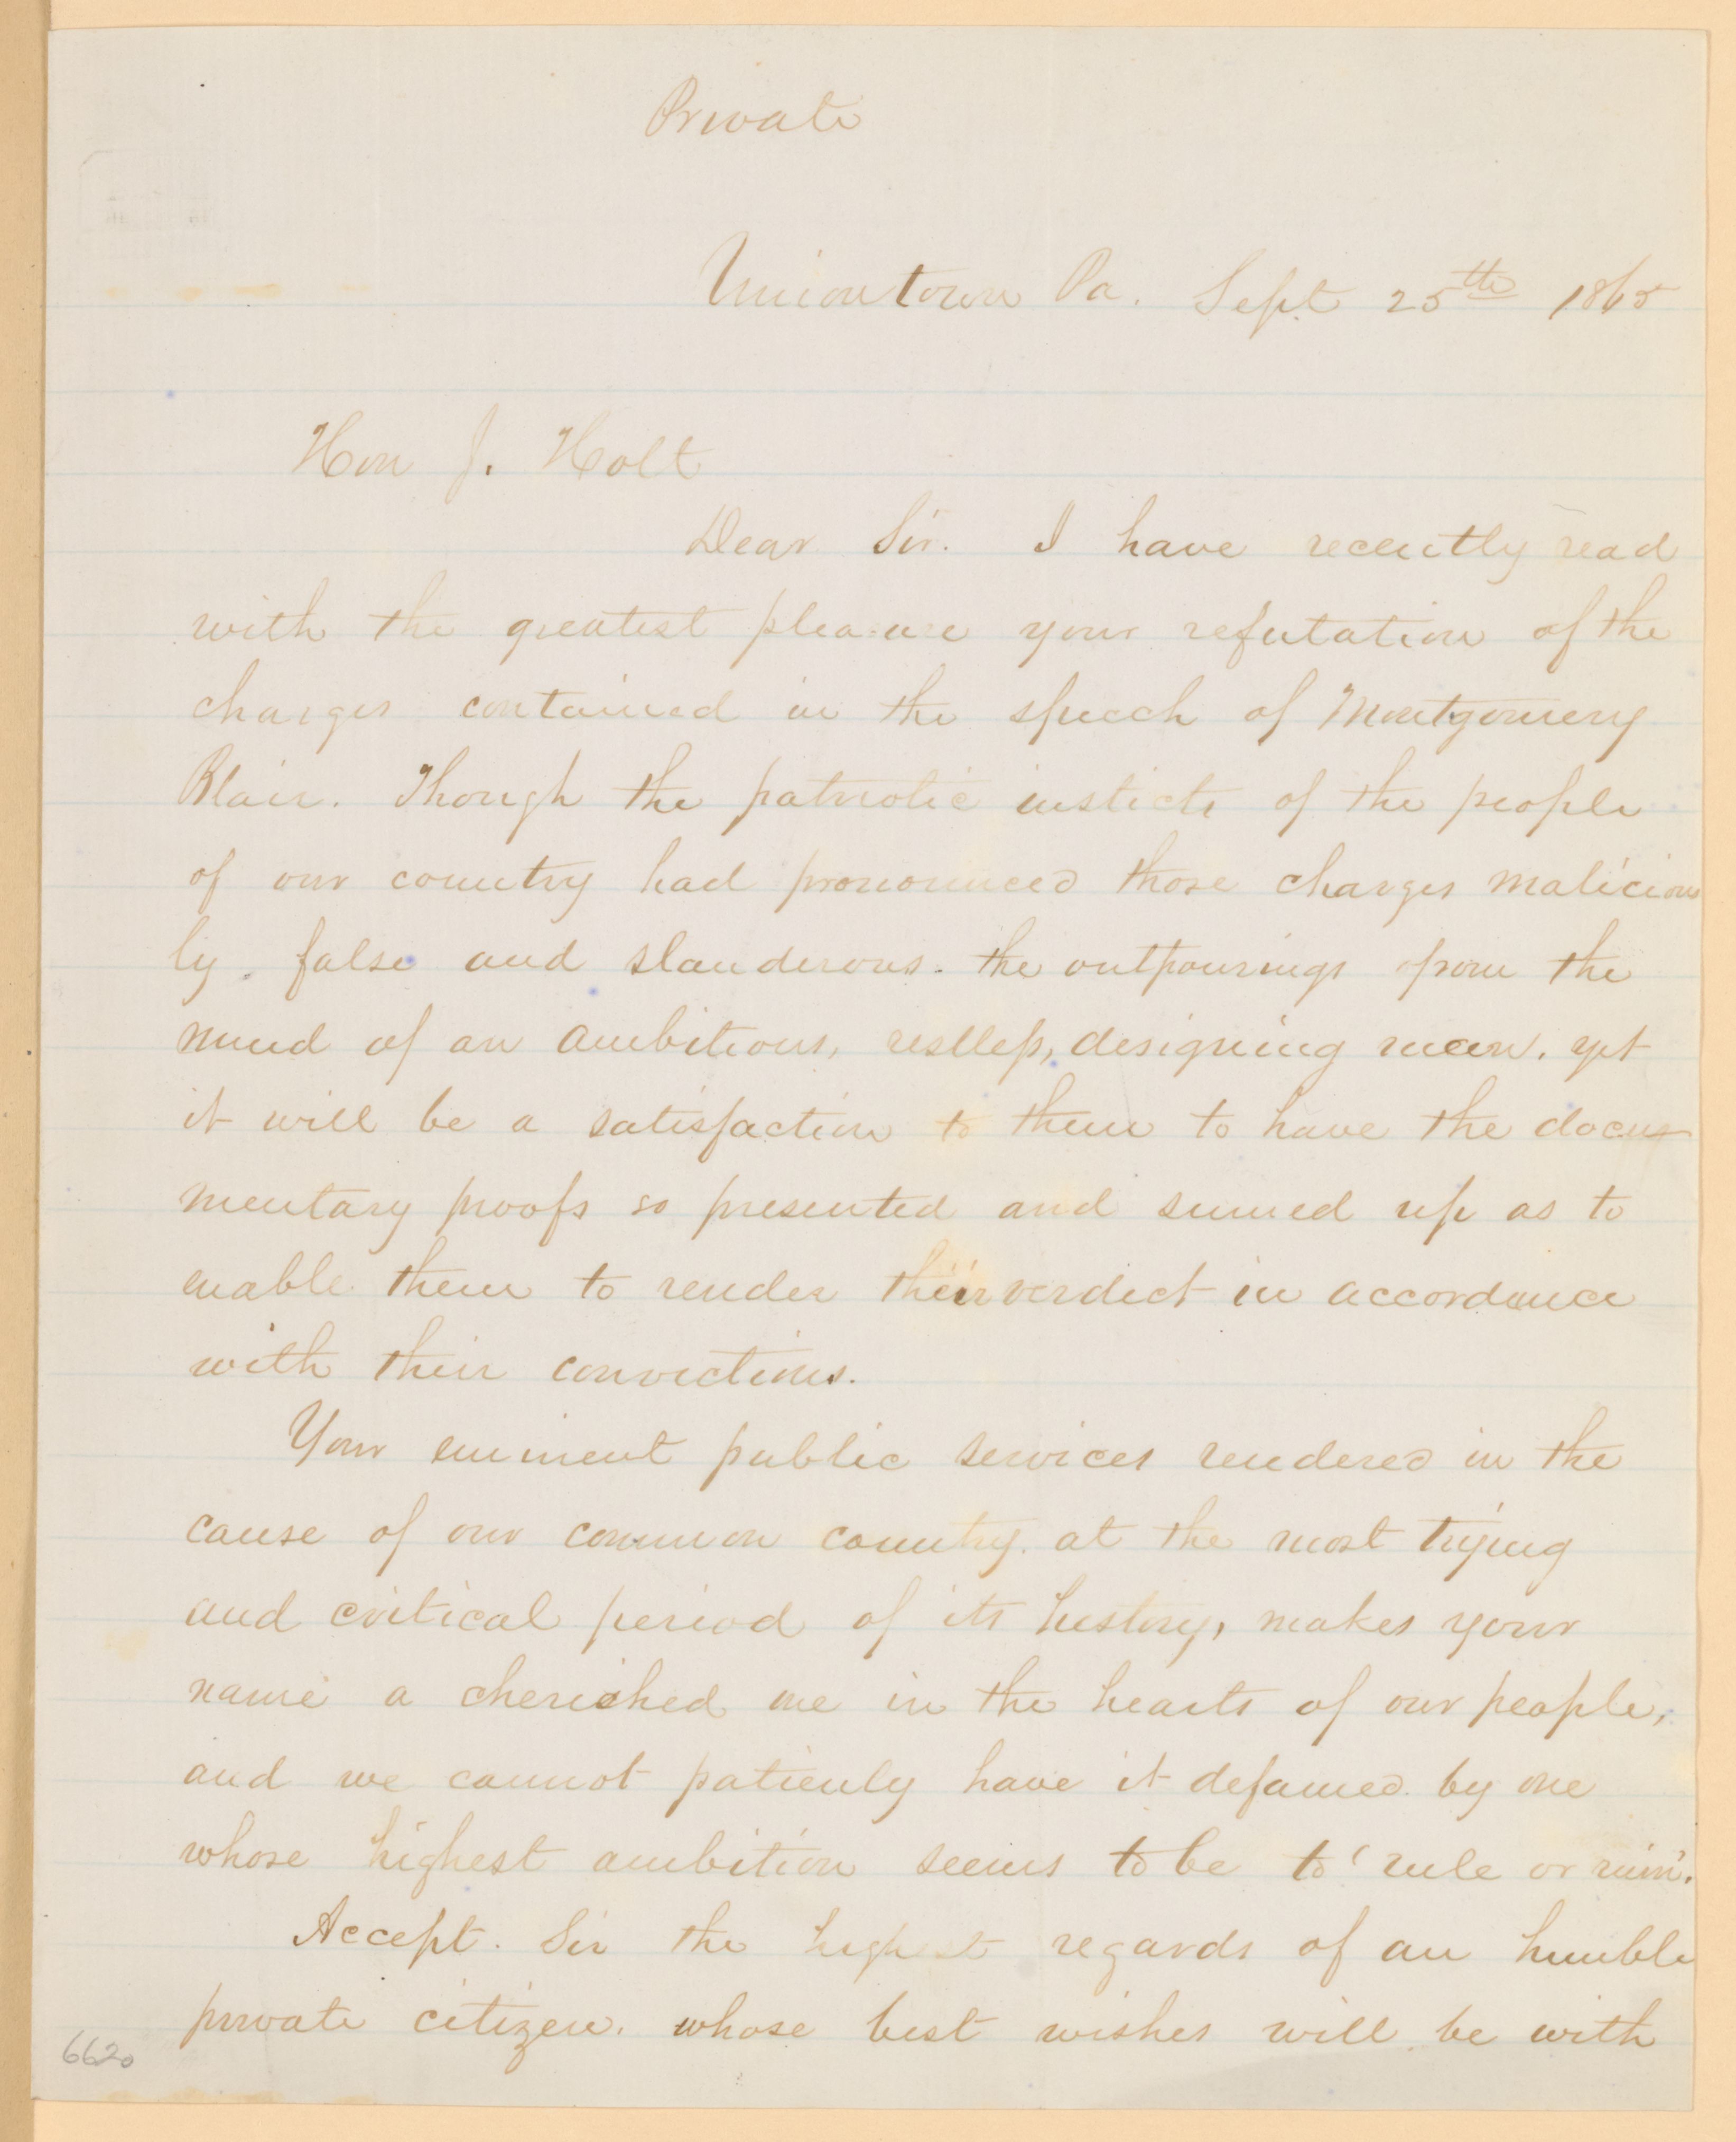 Private
Uniontown Pa. Sept 25th 1865
Hon J. Holt
Dear Sir. I have recently read
with the greatest pleasure your refutation of the
charges contained in the speech of Montgomery
Blair. Though the patriotic insticts of the people
of our country had pronounced those charges malicious
ly. false and slanderous. the outpourings from the
mind of an ambitious, restless, designing man. yet
it will be a satisfaction to them to have the docu-
mentary proofs so presented and sumed up as to
enable them to render their verdict in accordance
with their convictions.
Your eminent public services rendered in the
cause of our common country. at the most trying
and critical period of its history, makes your
name a cherished one in the hearts of our people,
and we cannot patienly have it defamed by one
whose highest ambition seems to be to 'rule or ruin'.
Accept. Sir the highest regards of an humble
private citizen. whose best wishes will be with
6620